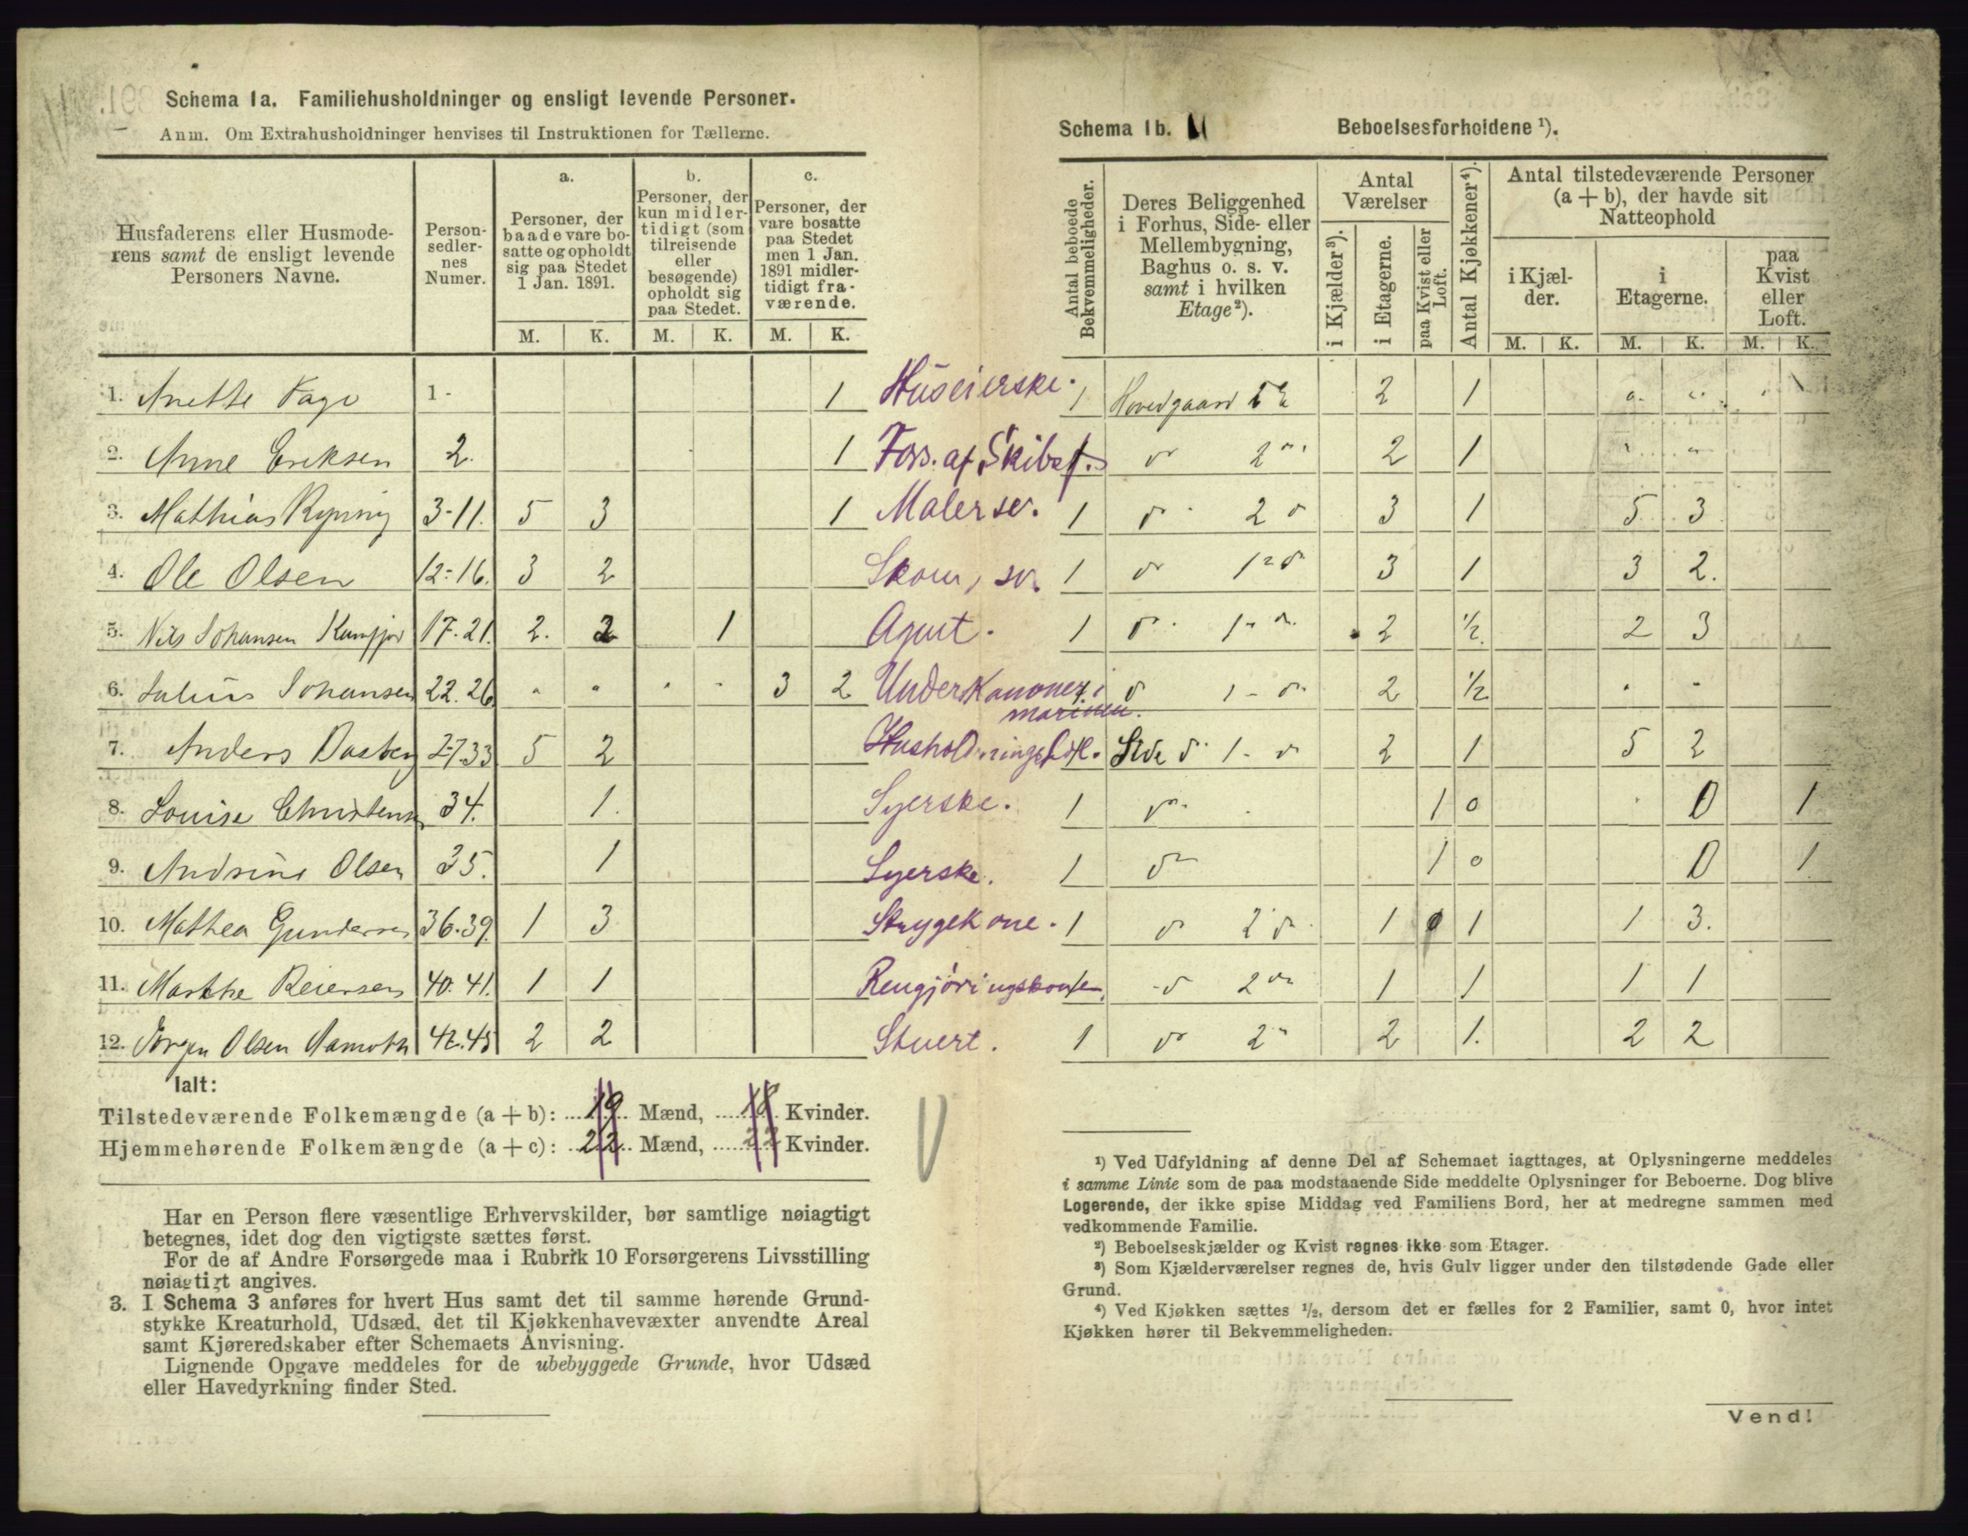 Schema 1a. Familiehusholdninger og ensligt levende Personer.
Anm. Om Extrahusholdninger henvises til Instruktionen for Tællerne.
Husfaderens eller Husmoderens samt de ensligt levende Personers Navne.
Person-sedler-nes Numer.
a.
Personer, der baade vare bosatte og opholdt sig paa Stedet 1 Jan. 1891.
b.
Personer, der kun midlertidigt (som tilreisende eller besøgende) opholdt sig paa Stedet.
c.
Personer, der vare bosatte paa Stedet men 1 Jan. 1891 midlertidigt fraværende.
M. K. M. K. M. K.
1. Anette 1 - 1 Huseierske.
2. Anne Eriksen 2. 1 Fors. af Skibsf.
3. Mathias 3-11. 5 3 1 Malersv.
4. Ole Olsen 12-16. 3 2 Skom, sv.
5. Nils Johansen 17.21. 2. 2 1 Agent.
6. Julius Johansen 22.26 " " " " 3 2 Underkanoner i marinen.
7. Anders 27.33 5 2 Husholdningsbdl.
8. Louise Christensen 34. 1. Syerske.
9. Andrine Olsen 35. 1 Syerske.
10. Mathea Gundersen 36.39. 1 3 Strygekone.
11. Marthe Reiersen 40.41. 1 1 Rengjøringskone.
12. Jørgen Olsen 42.45 2 2 Stuert.
Ialt:
Tilstedeværende Folkemængde (a + b): 19 Mænd, 18 Kvinder.
Hjemmehørende Folkemængde (a + c): 22 Mænd, 22 Kvinder.
Har en Person flere væsentlige Erhvervskilder, bør samtlige nøiagtigt
betegnes, idet dog den vigtigste sættes først.
For de af Andre Forsørgede maa i Rubrik 10 Forsørgerens Livsstilling
nøiagtigt angives.
3. I Schema 3 anføres for hvert Hus samt det til samme hørende Grund-
stykke Kreaturhold, Udsæd, det til Kjøkkenhavevæxter anvendte Areal
samt Kjøreredskaber efter Schemaets Anvisning.
Lignende Opgave meddeles for de ubebyggede Grunde, hvor Udsæd
eller Havedyrkning finder Sted.
Schema 1b. Beboelsesforholdene ¹).
Antal beboede Bekvemmeligheder.
Deres Beliggenhed i Forhus, Side- eller Mellembygning, Baghus o. s. v. samt i hvilken Etage²).
Antal Værelser
i Kjælder³).
i Etagerne.
paa Kvist eller Loft.
Antal Kjøkkener⁴).
Antal tilstedeværende Personer (a + b), der havde sit Natteophold
i Kjælder.
i Etagerne.
paa Kvist eller Loft.
M. K. M. K. M. K.
1 Hovedgaard 2 1 " "
1 do 2 2 1 " "
1 do 2 do 3 1 5 3
1 do 1 do 3 1 3 2.
1 do 1 do 2 1/2. 2 3
do 1 - do 2 1/2 " "
Side do 1 - do 2 1 5 2
1 do 1 0 0 1
1 do 1 0 0 1
1 do 2 do 1 0 1 1 3.
do 2 do 1 1 1 1
1 do 2 2 1. 2 2
¹) Ved Udfyldning af denne Del af Schemaet iagttages, at Oplysningerne meddeles
i samme Linie som de paa modstaaende Side meddelte Oplysninger for Beboerne. Dog blive
Logerende, der ikke spise Middag ved Familiens Bord, her at medregne sammen med
vedkommende Familie.
²) Beboelseskjælder og Kvist regnes ikke som Etager.
³) Som Kjælderværelser regnes de, hvis Gulv ligger under den tilstødende Gade eller
Grund.
⁴) Ved Kjøkken sættes ½, dersom det er fælles for 2 Familier, samt 0, hvor intet
Kjøkken hører til Bekvemmeligheden.
Vend!